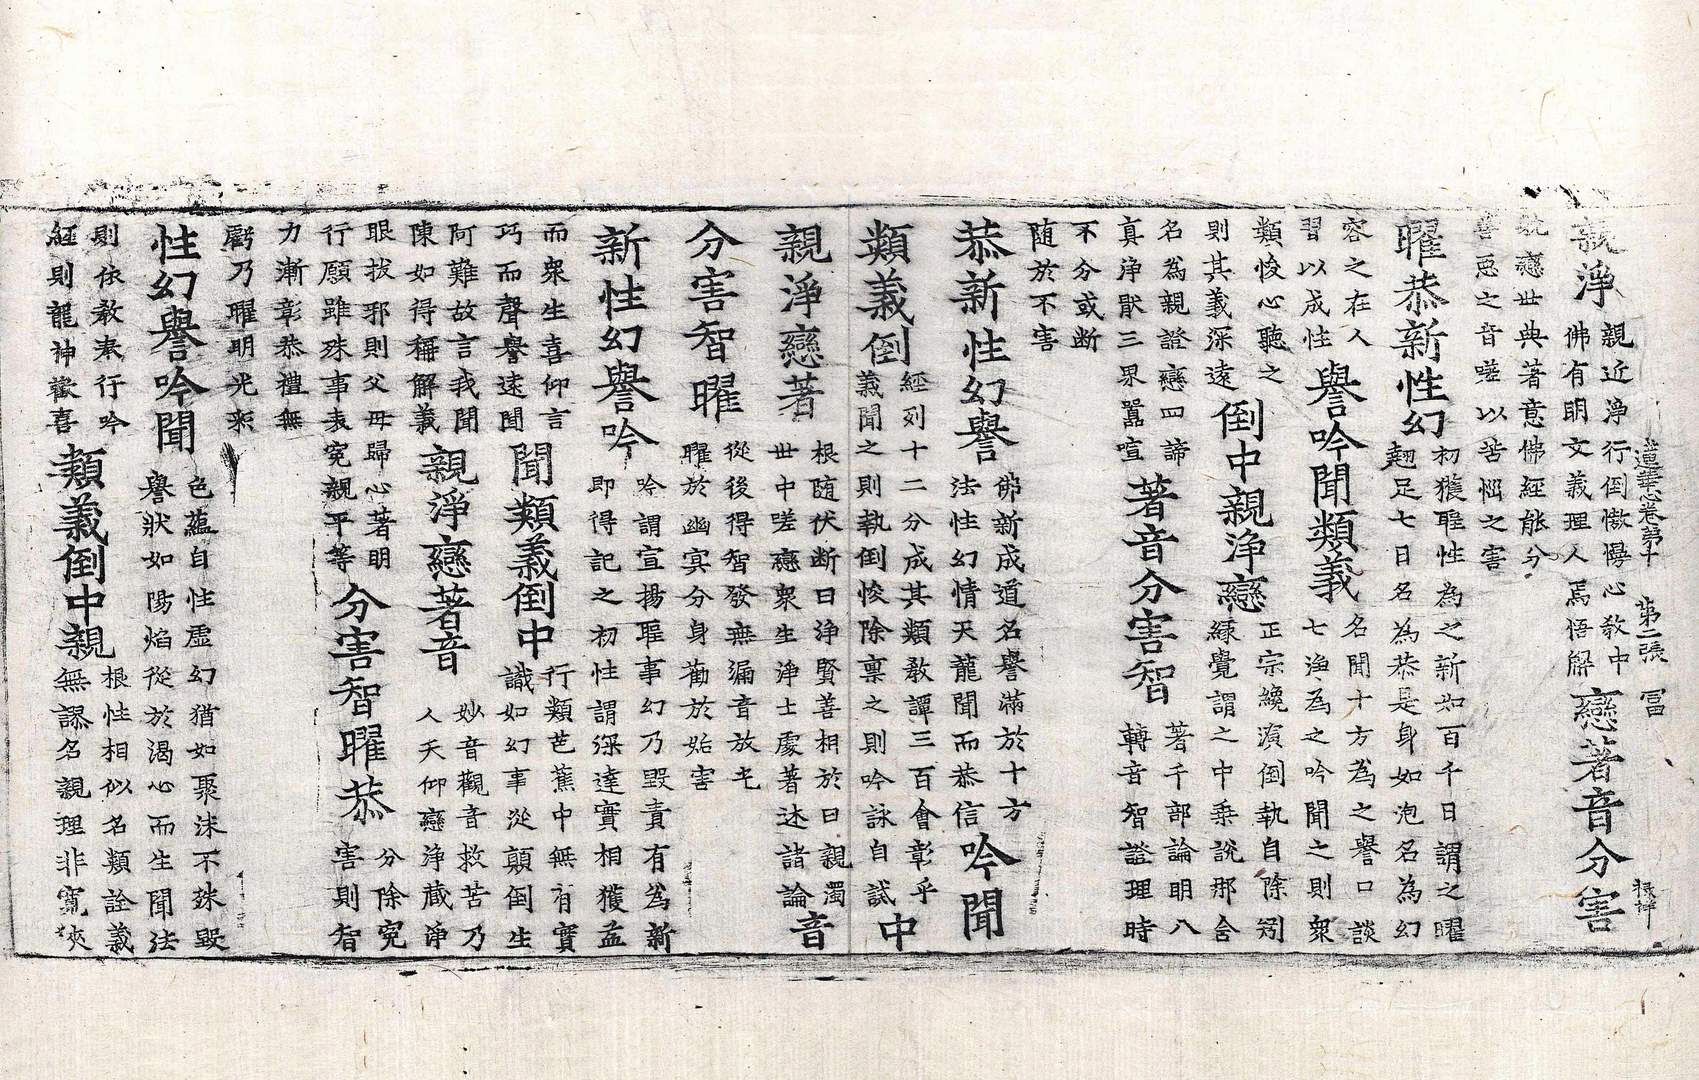 蓮華心卷第十 第二張 冨
親淨
親近淨行倒懒慢心教中
佛有明文義理人焉悟解
戀著音分害
耽戀世典著意佛經能分
善惡之音嗟以苦惱之害
曜恭新性幻
初獲聖性為之新如百千日謂之曜
翹足七日名為恭是身如泡名為幻
容之在人
習以成性
譽吟聞類義
名聞十方為之譽口談
七漁為之吟聞之則衆
類悛心聽之
則其義深遠
倒中親淨戀
正宗纔演倒執自除
緣覺謂之中乗說那含
名為親證戀四諦
真淨猒三界囂喧
著音分害智
著千部論明八
轉音智證理時
不分或断
随於不害
恭新性幻譽
佛新成道名譽滿於十方
法性幻情天龍聞而恭信
吟聞
類義倒
經列十二分成其類教譚三百會彰乎
義聞之則執倒悛除稟之則吟詠自試
中
親淨戀著
根随伏断曰淨賢善相於曰親濁
世中嗟戀衆生淨土處著述諸論
音
分害智曜
從後得智發無漏音放七
曜於幽冥分身勸於始害
新性幻譽吟
吟謂宣揚聖事幻乃毀責有為新
即得記之初性謂深達實相獲益
而衆生喜仰言
巧而聲譽遠聞
聞類義倒中
行類芭蕉中無有實
識如幻事從顛倒生
阿難故言我聞
陳如得稱解義
親淨戀著音
妙音觀音救苦乃
人天仰戀淨藏淨
眼拔邪則父母歸心著明
行願雖殊事表寃親平等
分害智曜恭
分除寃
害則智
力漸彰恭禮無
虧乃曜明光彩
性幻譽吟聞
色蘊自性虛幻猶如聚沫不殊毀
譽狀如陽焰從於渴心而生聞法
則依教奉行吟
經則龍神歡喜
類義倒中親
根性相似名類詮義
無謬名親理非寬狹